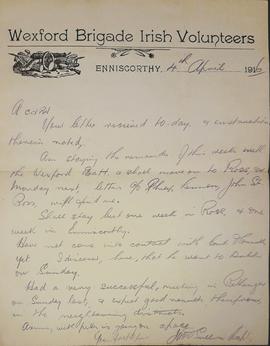 Wexford Brigade Irish Volunteers
ENNISCORTHY, 4th April 1916
A cara
Your letter received to-day, &
therein noted.
Am staying the remainder of this week with
the Wexford Batt. & shall move on to Ross, on
Monday next, letters c/o Phil Lennon, John St
Ross, will find me.
Shall stay but one week in Ross, & one
week in Enniscorthy.
Have not come into contact with
yet I discover, line, that he went to Dublin
on Sunday.
Had a very successful meeting in
on Sunday last, & expect good results therefrom,
in the neighbouring districts.
work is going on apace.